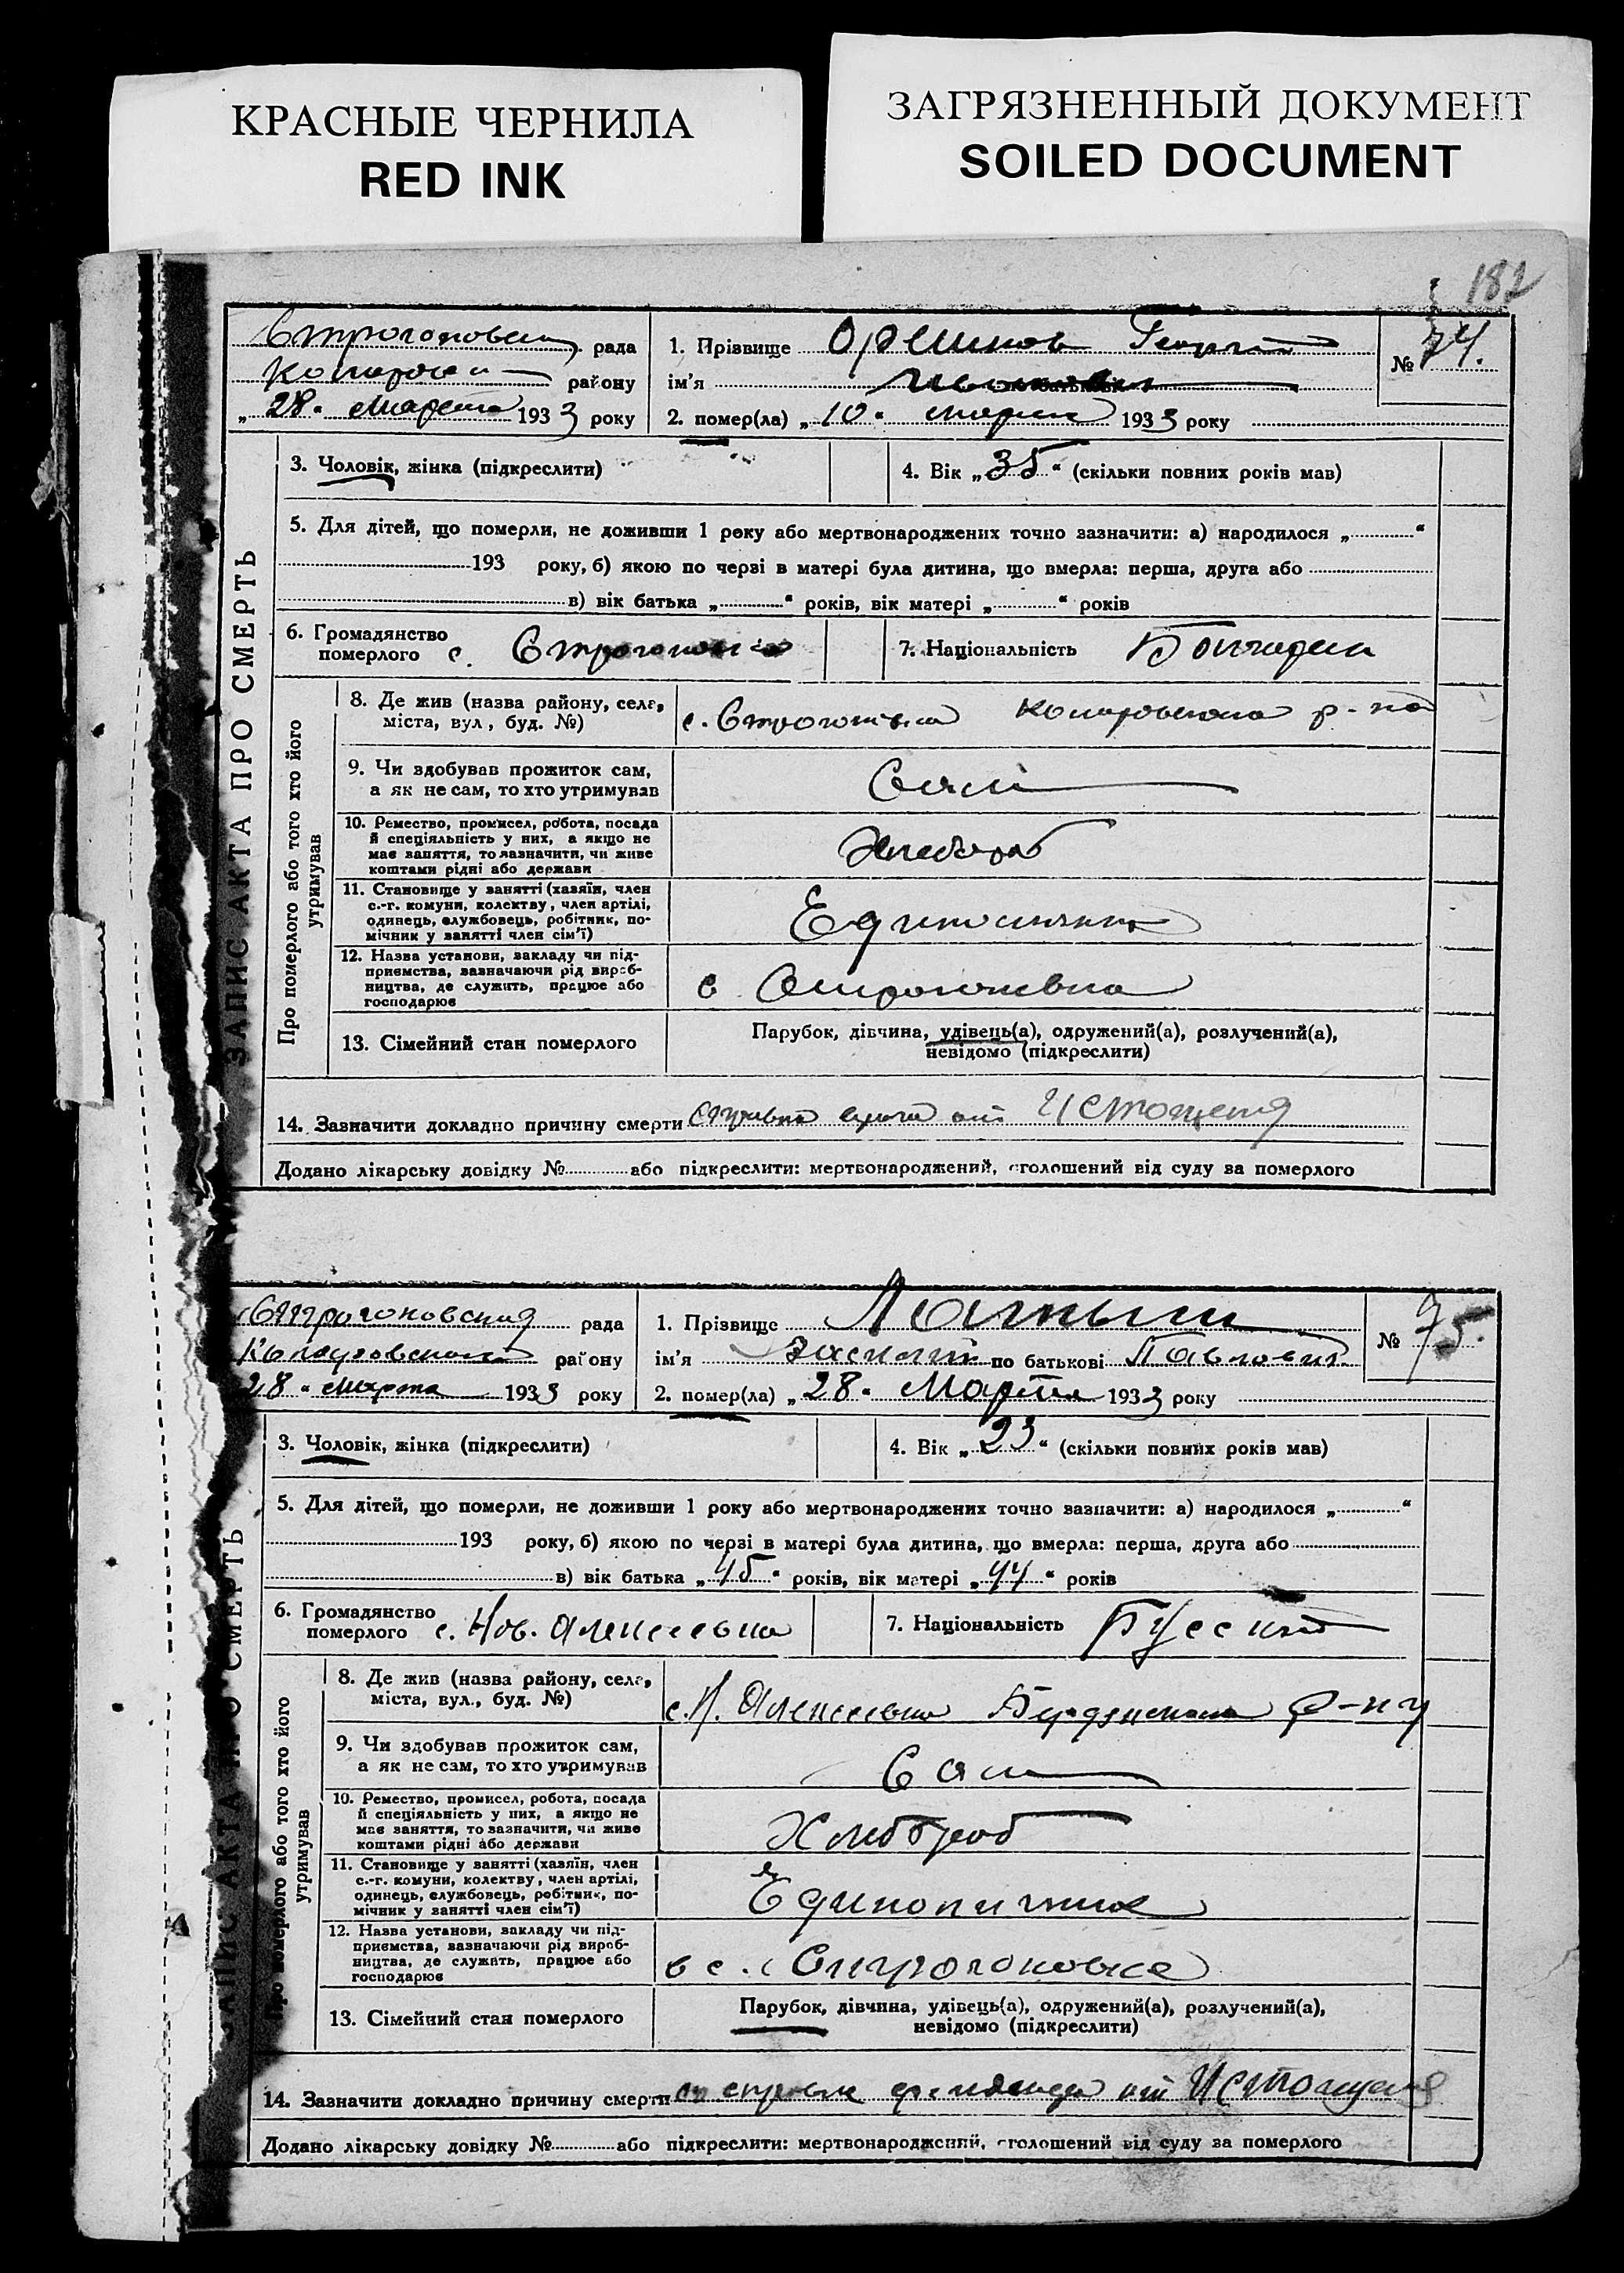 КРАСНЫЕ ЧЕРНИЛА
RED INK
ЗАГРЯЗНЕННЫЙ ДОКУМЕНТ
SOILED DOCUMENT
182
ЗАПИС АКТА ПРО СМЕРТЬ
рада
району
„28“ Марта 1933 року
1. Прізвище Орешков Георгий
ім’я
2. помер(ла) „10“ марта 1933 року
№ 74.
3. Чоловік, жінка (підкреслити)
4. Вік „35“ (скільки повних років мав)
5. Для дітей, що померли, не доживши 1 року або мертвонароджених точно зазначити: а) народилося „ “
193 року, б) якою по черзі в матері була дитина, що вмерла: перша, друга або
в) вік батька „ “ років, вік матері „ “ років
6. Громадянство
померлого с.
7. Національність
Про померлого або того хто його
утримував
8. Де жив (назва району, села,
міста, вул., буд. №)
с. р-на
9. Чи здобував прожиток сам,
а як не сам, то хто утримував
Сам
10. Ремество, промисел, робота, посада
й спеціяльність у них, а якщо не
має заняття, то зазначити, чи живе
коштами рідні або держави
Хлебороб
11. Становище у занятті (хазяїн, член
с.-г. комуни, колектву, член артілі,
одинець, службовець, робітник, по-
мічник у занятті член сім’ї)
Единоличник
12. Назва установи, закладу чи під-
приємства, зазначаючи рід вироб-
ництва, де служить, працює або
господарює
13. Сімейний стан померлого
Парубок, дівчина, удівець(а), одружений(а), розлучений(а),
невідомо (підкреслити)
14. Зазначити докладно причину смерти от Истощения
Додано лікарську довідку № або підкреслити: мертвонароджений, оголошений від суду за померлого
ЗАПИС АКТА ПРО СМЕРТЬ
Строгоновская рада
району
28“ Марта 1933 року
1. Прізвище
ім’я Василий по батькові Павлович
2. помер(ла) „28“ Марта 1933 року
№ 75.
3. Чоловік, жінка (підкреслити)
4. Вік „23“ (скільки повних років мав)
5. Для дітей, що померли, не доживши 1 року або мертвонароджених точно зазначити: а) народилося „ “
193 року, б) якою по черзі в матері була дитина, що вмерла: перша, друга або
в) вік батька „45“ років, вік матері „44“ років
6. Громадянство
померлого с. Нов. Алексеевка
7. Національність
Про померлого або того хто його
утримував
8. Де жив (назва району, села,
міста, вул., буд. №)
с. Н. Алексеевка р-ну
9. Чи здобував прожиток сам,
а як не сам, то хто утримував
Сам
10. Ремество, промисел, робота, посада
й спеціяльність у них, а якщо не
має заняття, то зазначити, чи живе
коштами рідні або держави
Хлебороб
11. Становище у занятті (хазяїн, член
с.-г. комуни, колектву, член артілі,
одинець, службовець, робітник, по-
мічник у занятті член сім’ї)
Единоличник
12. Назва установи, закладу чи під-
приємства, зазначаючи рід вироб-
ництва, де служить, працює або
господарює
в с. Строгоновке
13. Сімейний стан померлого
Парубок, дівчина, удівець(а), одружений(а), розлучений(а),
невідомо (підкреслити)
14. Зазначити докладно причину смерти от Истощения
Додано лікарську довідку № або підкреслити: мертвонароджений, оголошений від суду за померлого